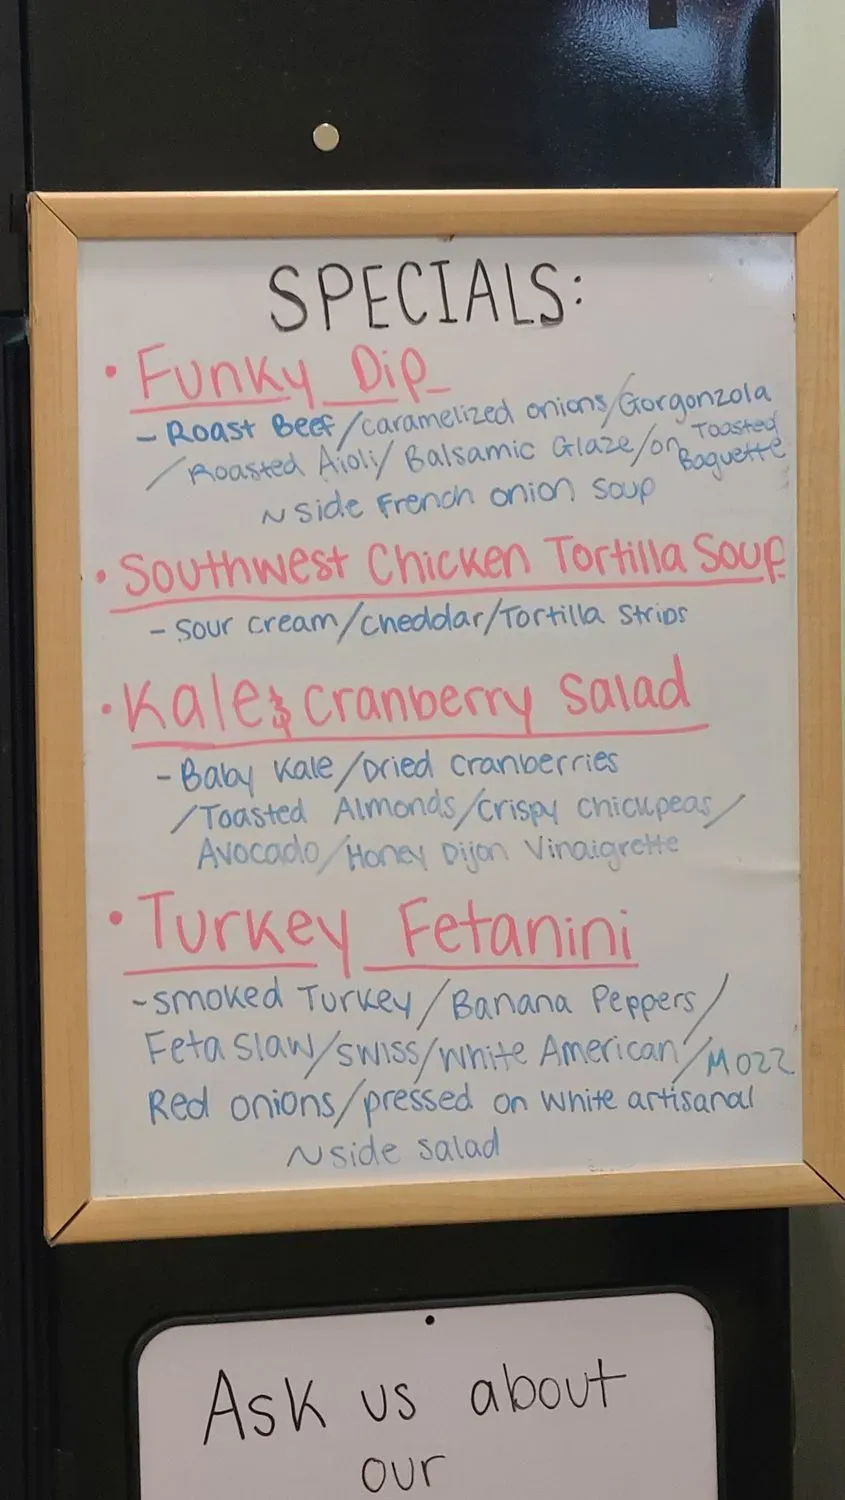 SPECIALS:
• Funky Dip
- Roast Beef/caramelized onions/Gorgonzola
/Roasted Aioli/Balsamic Glaze/on Toasted Baguette
~ side French onion soup
• Southwest Chicken Tortilla Soup
- Sour cream/cheddar/Tortilla Strips
• Kale & Cranberry Salad
- Baby Kale/Dried cranberries
/Toasted Almonds/crispy chickpeas/
Avocado/Honey Dijon Vinaigrette
• Turkey Fetanini
- smoked Turkey/Banana Peppers/
Feta Slaw/swiss/white American/Mozz
Red onions/pressed on white artisanal
~ side salad
Ask us about
our